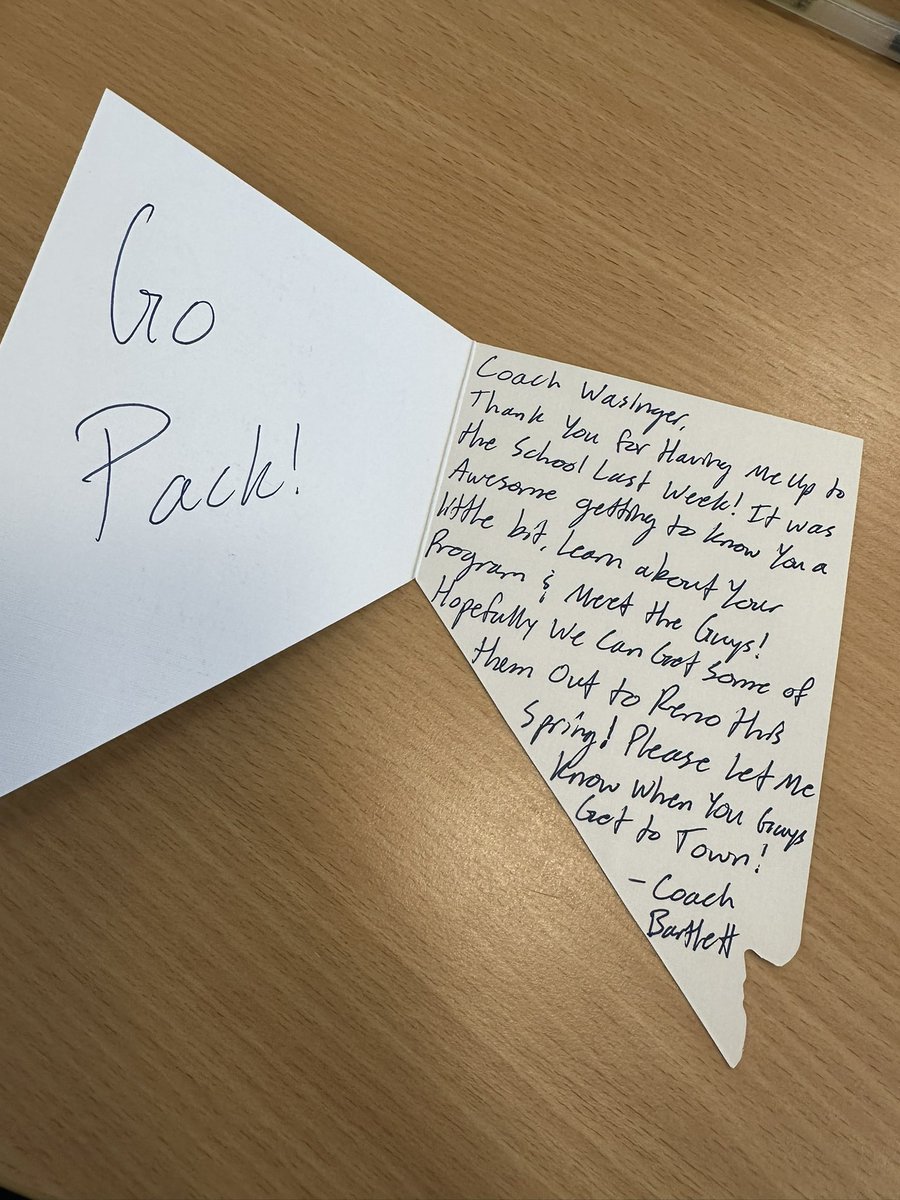 Go
Pack!
Coach Wasinger,
Thank You for Having Me Up to
the School Last Week! It was
Awesome getting to know You a
little bit, Learn about Your
Program & Meet the Guys!
Hopefully We Can Get Some of
them Out to Reno this
Spring! Please Let Me
Know When You Guys
Get to Town!
- Coach
Bartlett